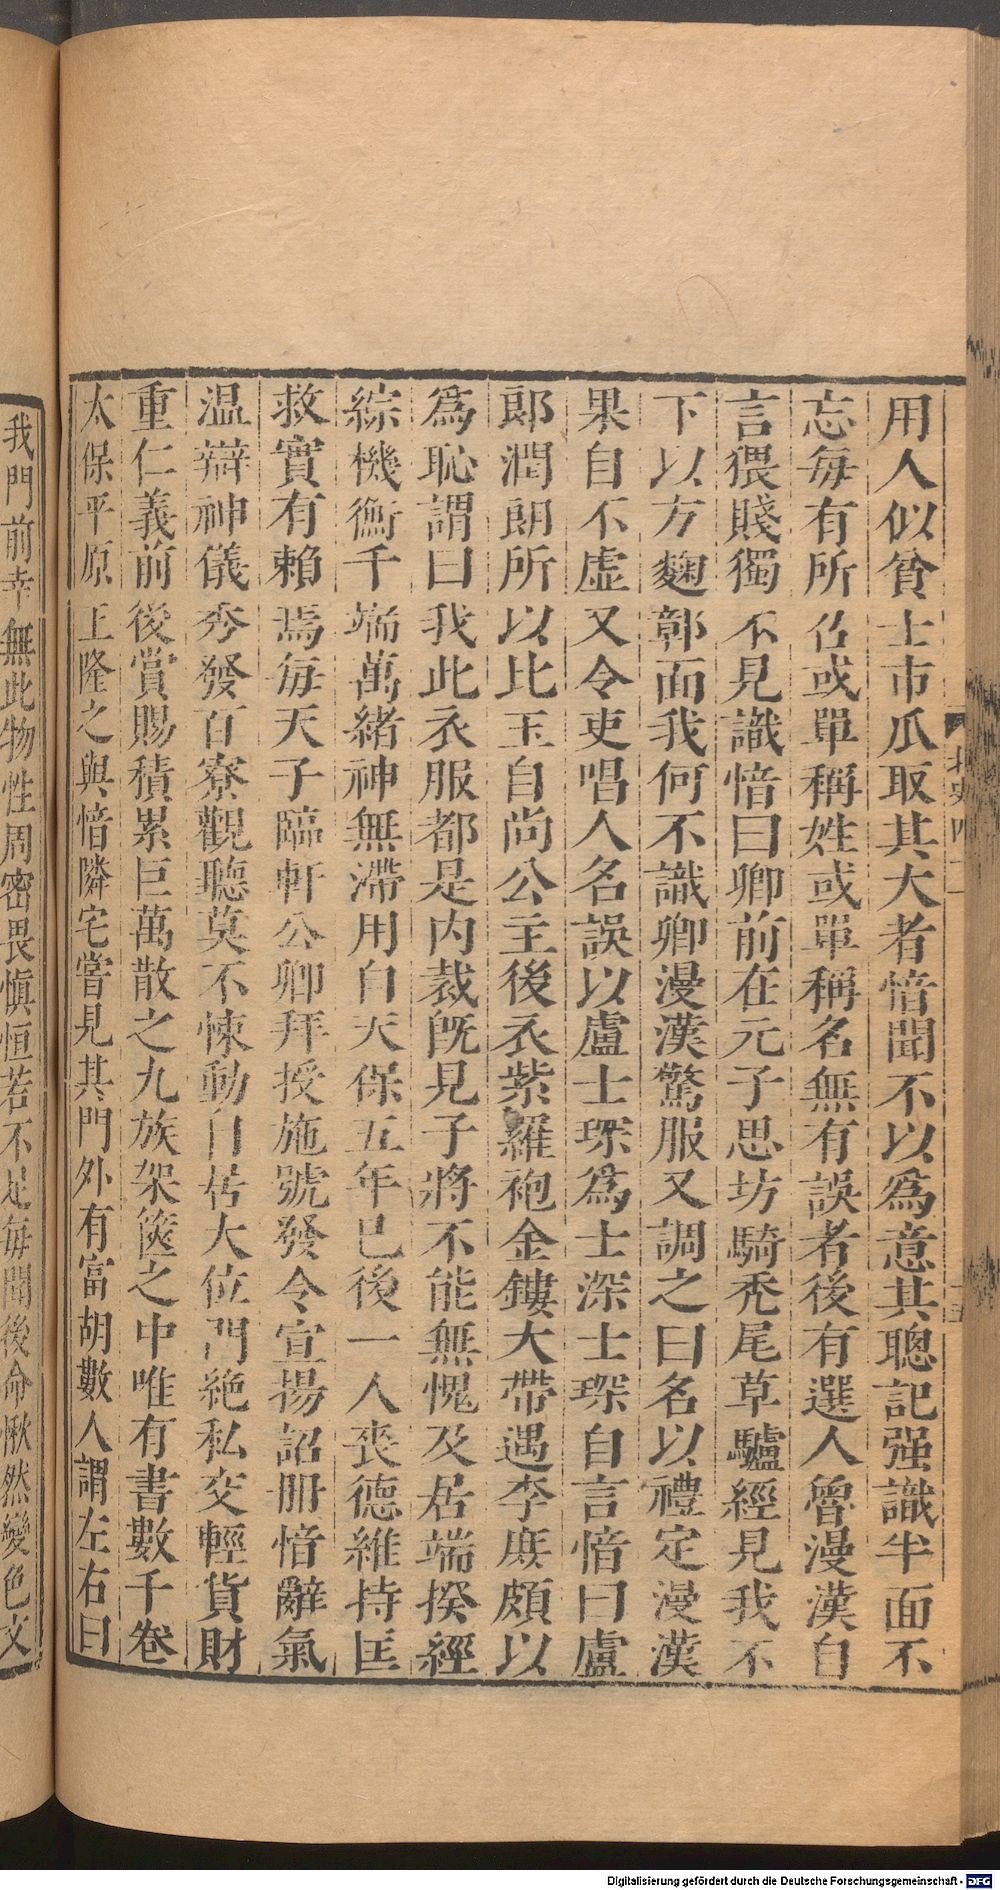 用人似貧士市瓜取其大者愔聞不以爲意其聰記强識半面不
忘每有所召或單稱姓或單稱名無有誤者後有選人魯漫漢自
言猥賤獨不見識愔曰卿前在元子思坊騎禿尾草驢經見我不
下以方麴鄣面我何不識卿漫漢驚服又調之曰名以禮定漫漢
果自不虛又令吏唱人名誤以盧士琛爲士深士琛自言愔曰盧
郎潤朗所以比玉自尚公主後衣紫羅袍金鏤大帶遇李庶頗以
爲恥謂曰我此衣服都是内裁旣見子將不能無愧及居端揆經
綜機衡千端萬緒神無滯用自天保五年已後一人喪德維持匡
救實有賴焉每天子臨軒公卿拜授施號發令宣揚詔册愔辭氣
温辯神儀秀發百寮觀聽莫不悚動自居大位門絶私交輕貨財
重仁義前後賞賜積累巨萬散之九族架篋之中唯有書數千卷
太保平原王隆之與愔隣宅嘗見其門外有富胡數人謂左右曰
我門前幸無此物性周密畏愼恒若不足每聞後命愀然變色文
北史四十一
Digitalisierung gefördert durch die Deutsche Forschungsgemeinschaft - DFG